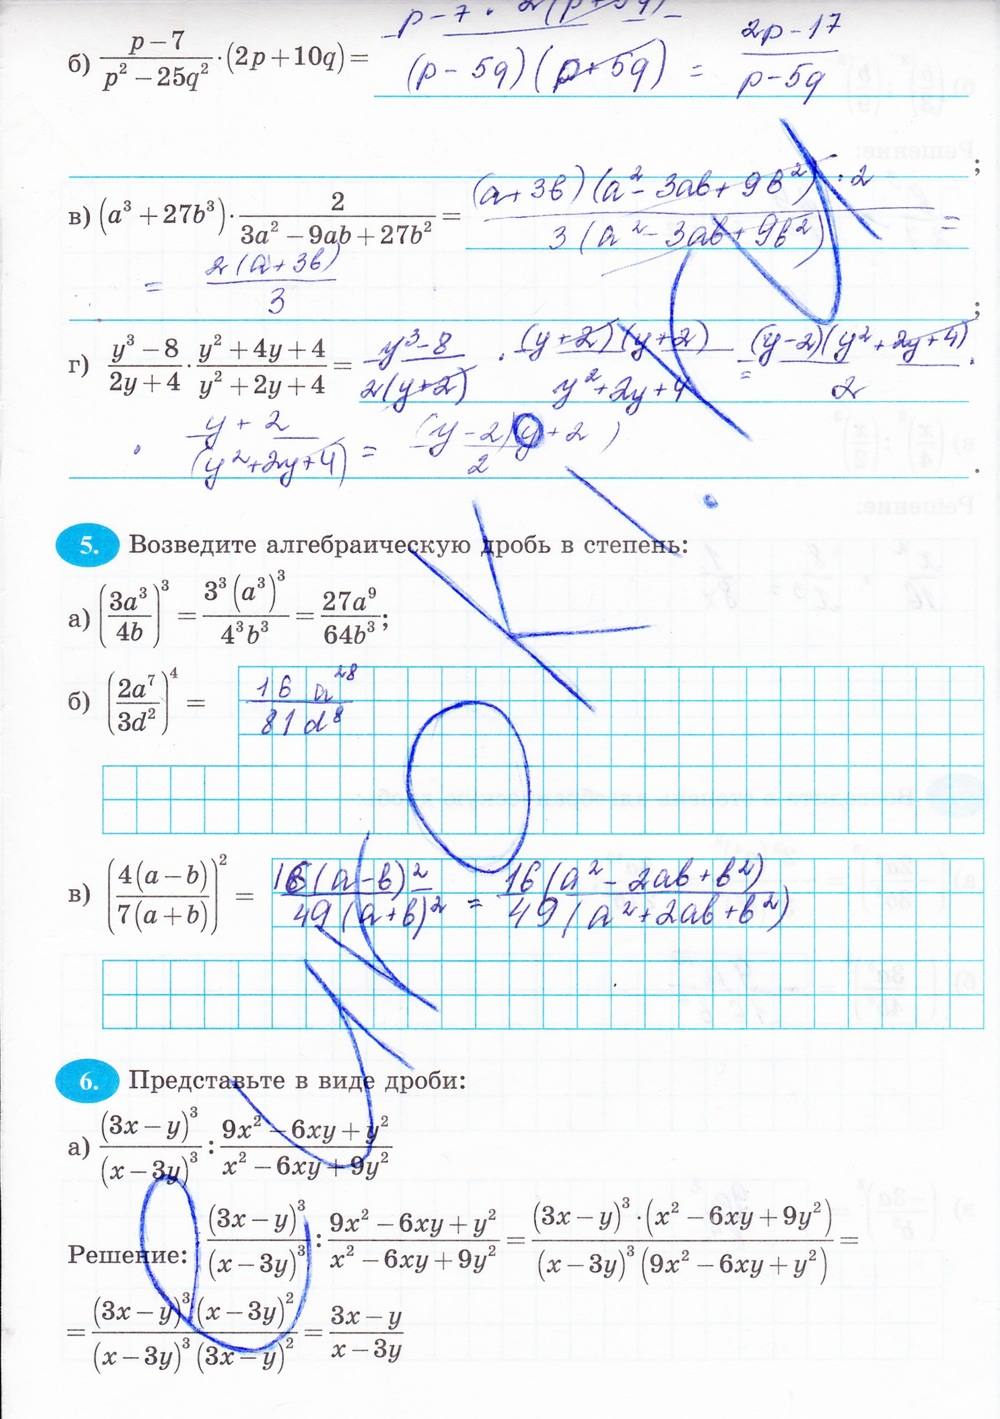 б) (p − 7)/(p² − 25q²) · (2p + 10q) = (p − 7 · 2(p + 5q))/((p − 5q)(p + 5q)) = (2p − 17)/(p − 5q)
;
в) (a³ + 27b³) · 2/(3a² − 9ab + 27b²) = ((a + 3b)(a² − 3ab + 9b²) · 2)/(3(a² − 3ab + 9b²)) =
= 2(a + 3b)/3
;
г) (y³ − 8)/(2y + 4) · (y² + 4y + 4)/(y² + 2y + 4) = (y³ − 8)/(2(y + 2)) · ((y + 2)(y + 2))/(y² + 2y + 4) = ((y − 2)(y² + 2y + 4))/2 ·
· (y + 2)/(y² + 2y + 4) = ((y − 2)(y + 2))/2
.
5. Возведите алгебраическую дробь в степень:
а) (3a³/4b)³ = 3³(a³)³/4³b³ = 27a⁹/64b³;
б) (2a⁷/3d²)⁴ = 16a²⁸/81d⁸
в) (4(a − b)/7(a + b))² = 16(a − b)²/49(a + b)² = 16(a² − 2ab + b²)/49(a² + 2ab + b²)
6. Представьте в виде дроби:
а) (3x − y)³/(x − 3y)³ : (9x² − 6xy + y²)/(x² − 6xy + 9y²)
Решение: (3x − y)³/(x − 3y)³ : (9x² − 6xy + y²)/(x² − 6xy + 9y²) = (3x − y)³ · (x² − 6xy + 9y²)/(x − 3y)³(9x² − 6xy + y²) =
= (3x − y)³(x − 3y)²/(x − 3y)³(3x − y)² = (3x − y)/(x − 3y)